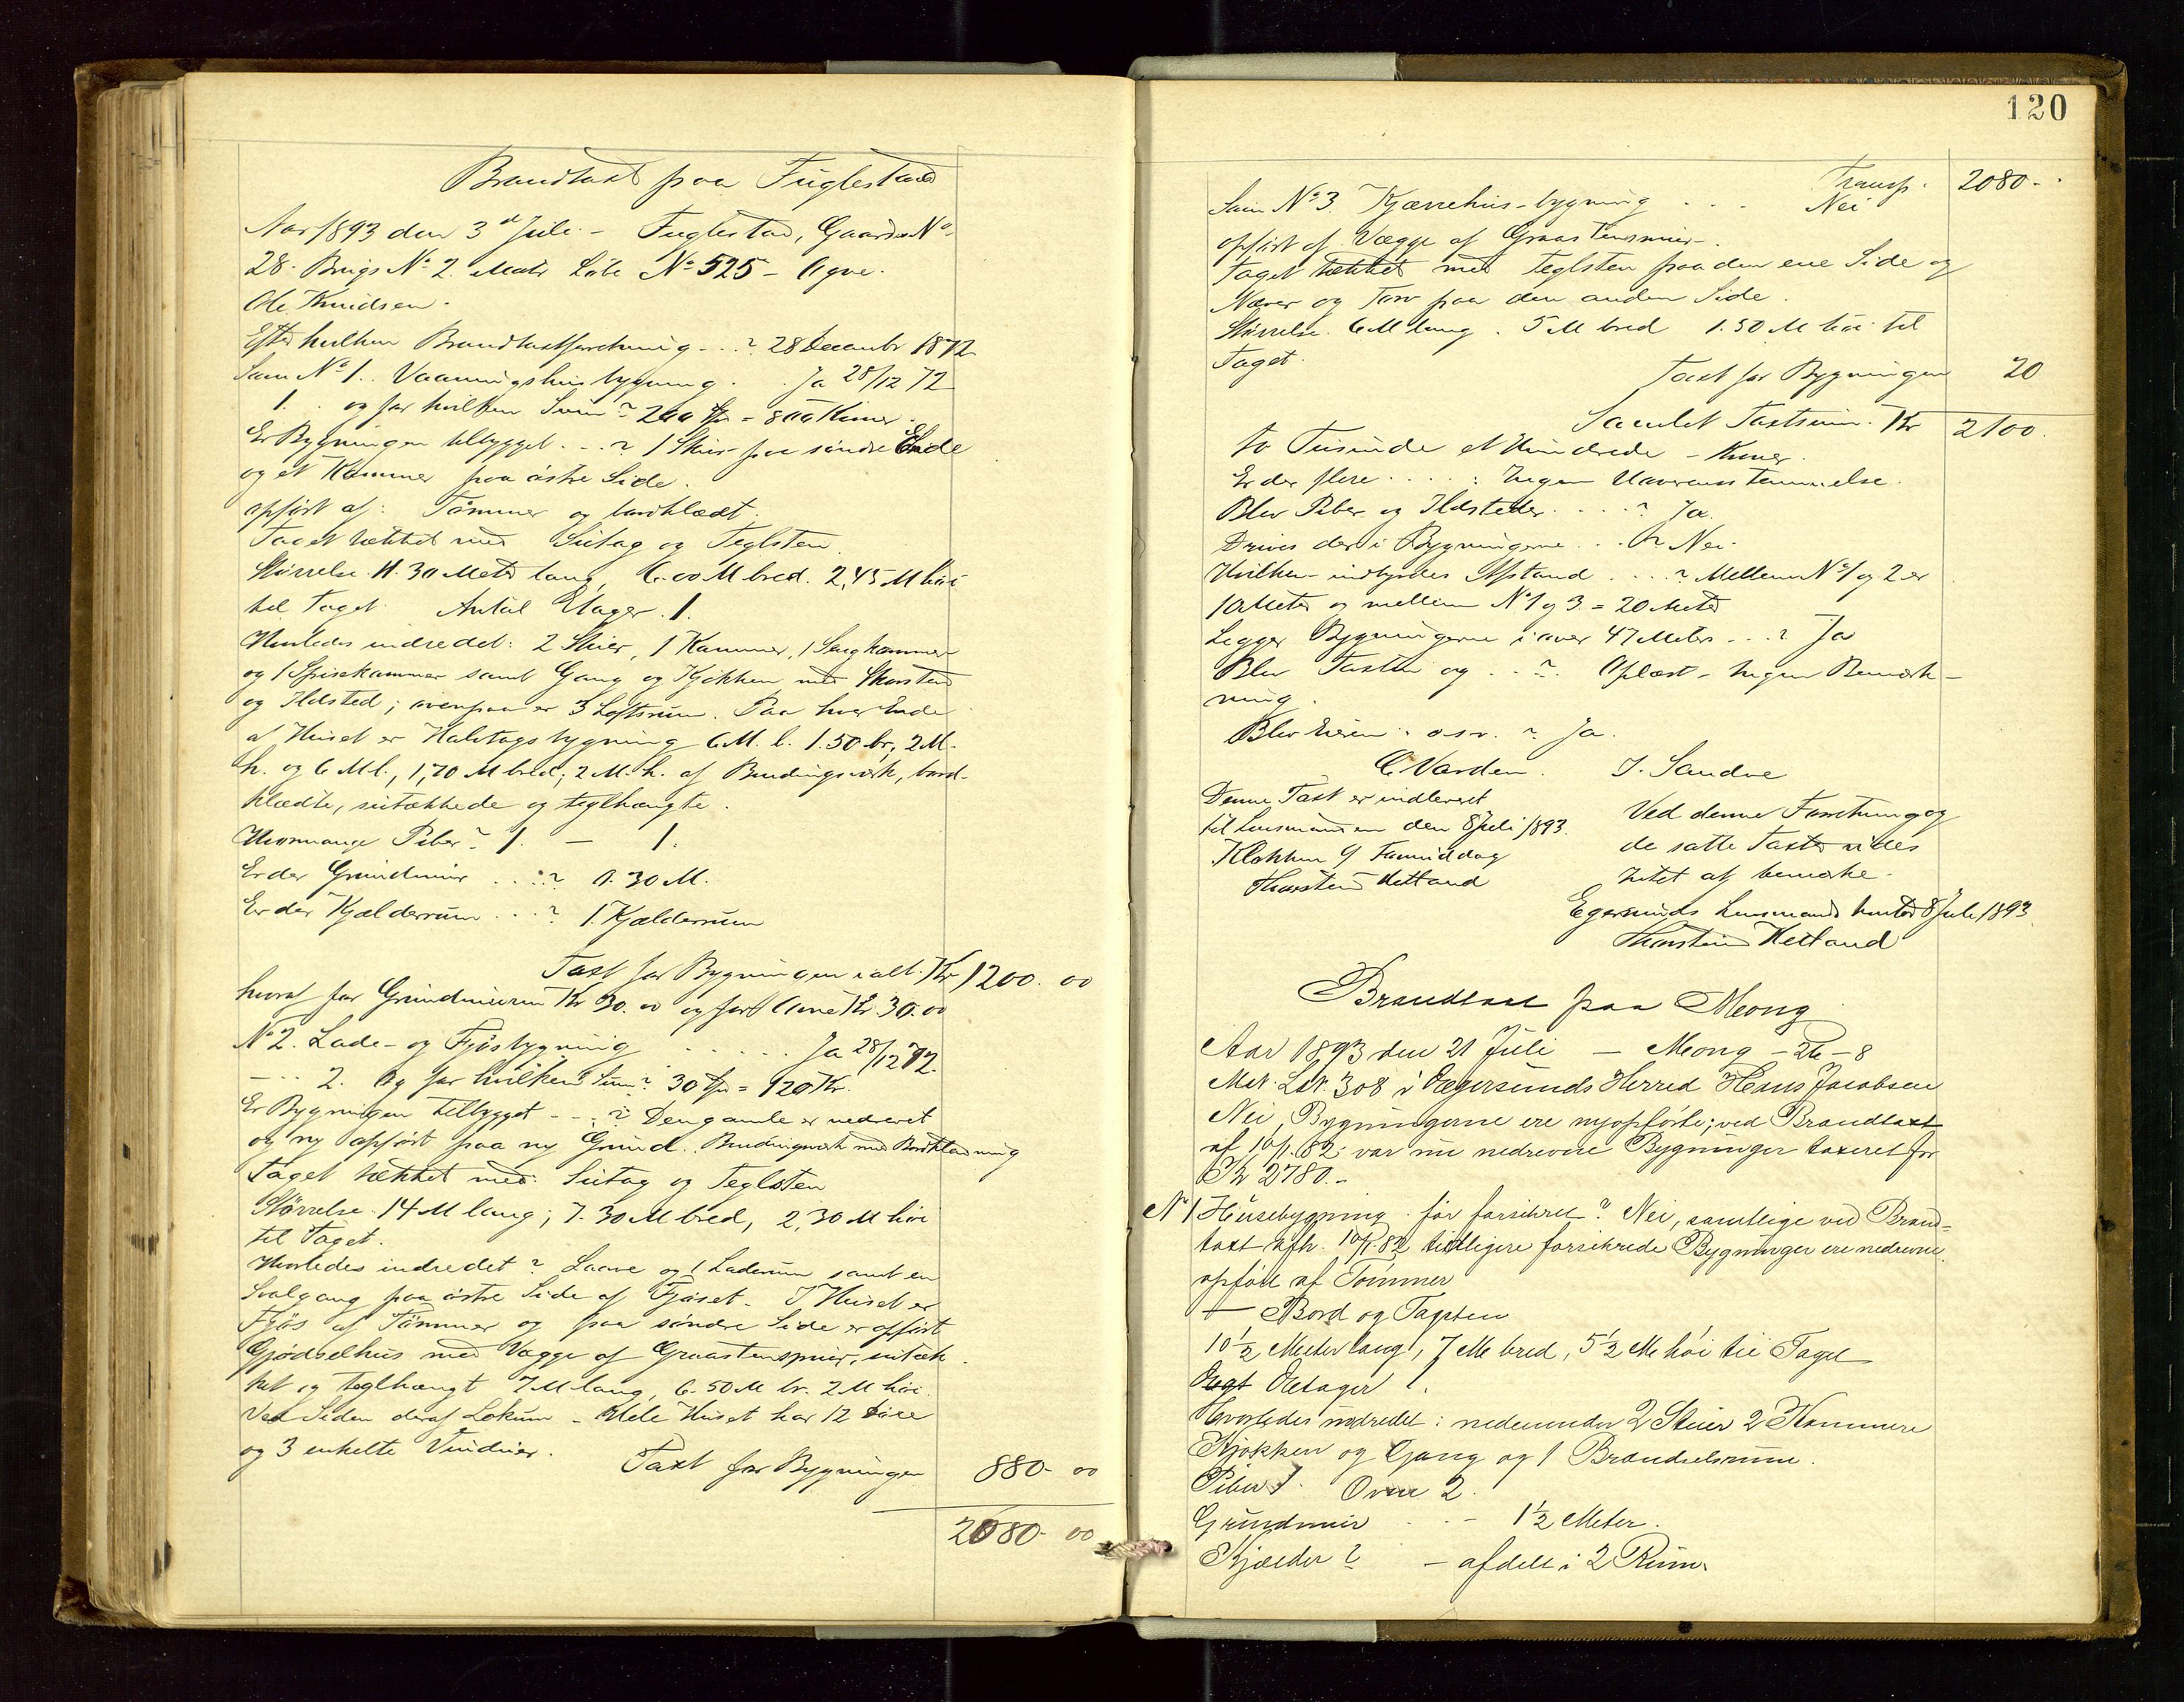 Brandtaxt paa Fuglestad
Aar 1893 den 3d Juli - Fuglestad, Gaards No
28. Brugs No 2. Matr Løbe No 525 - Egne.
Ole Knudsen.
Efter hvilken Brandtaxtforretning - . . ? 28 Decembr 1872
Som No 1. . Vaaningshusbygning . . Ja 28/12 72
1. . og for hvilken Sum? 200 Spd = 800 Kroner
Er Bygningen tilbygget . - . ? 1 Skur paa søndre Ende
og et Kammer paa østre Side.
opført af: Tømmer og bordklædt.
Taget tækket med Sutag og Teglsten.
Størrelse 11.30 Meter lang, 6.00 M bred. 2,45 M høi
til Taget. Antal Etager. 1.
Hvorledes indredet: 2 Stuer, 1 Kammer, 1 Sengkammer
og 1 Spisekammer samt Gang og Kjøkken med Skorsten
og Ildsted; ovenpaa er 3 Loftsrum. Paa hver Ende
af Huset er Halvtagsbygning 6 M. l. 1.50 br, 2 M.
h. og 6 M l., 1,70 M bred, 2 M. h. af Bindingsværk, bord-
klædte, sutækkede og teglhængte.
Hvormange Piber? 1. — 1.
Er der Grundmur . . : ? 0.30 M.
Er der Kjælderrum . . . ? 1. Kjælderrum
Taxt for Bygningen ialt. Kr 1200. 00
hvoraf for Grundmuren Kr 30. 00 og for Ovne Kr. 30.00
No 2. Lade- og Fjøsbygning . . . . . . Ja 28/12 72.
— . . 2. og for hvilken Sum? 30 Spd = 120 Kr.
Er Bygningen tilbygget - . . ? Den gamle er nedrevet
og ny opført paa ny Grund. Bindingsværk med Bordklædning
Taget tækket med Sutag og Teglsten
Størrelse. 14 M lang; 7.30 M bred, 2,30 M høi
til Taget.
Hvorledes indredet? Laave og 1 Laderum samt en
Svalgang paa østre Side af Fjøset. I Huset er
Fjøs af Tømmer og paa søndre Side er opført
Gjødselhus med Vægge af Graastensmur, sutæk
ket og teglhængt 7 M lang, 6.50 M br. 2 M høi.
Ved Siden deraf Lokum - Hele Huset har 12 Døre
og 3 enkelte Vinduer.
Taxt for Bygningen 880- 00
2080- 00
120
Transp. 2080-
Som No 3. Kjærrehus-bygning . . . Nei
opført af Vægge af Graastensmur.
Taget tækket med Teglsten paa den ene Side og
Næver og Torv paa den anden Side.
Størrelse 6 M lang. 5 M bred 1.50 M høi til
Taget.
Taxt for Bygningen 20
Samlet Taxtsum. Kr 2100.
to Tusinde et Hundrede - Kroner.
Er der flere . . . . : Ingen Uoverensstemmelse.
Blev Piber og Ildsteder . . . . ? Ja.
Drives der i Bygningerne . . . ? Nei.
Hvilken indbyrdes Afstand . . . ? Mellem No 1 og 2 er
10 Meter og mellem No 1 og 3. = 20 Meter
Ligger Bygningerne i over 47 Meter . . . ? Ja
Blev Taxten og . - ? . Oplæst - Ingen Bemærk-
ning.
Blev Eieren . o.s.v. ? Ja.
C. Varden. J. Sandve
Denne Taxt er indleveret
til Lensmanden den 8 Juli 1893.
Klokken 9 Formiddag
Thorstein Hetland
Ved denne Forretning og
de satte Taxter vides
Intet at bemærke.
Egersunds Lensmands kontor 8 Juli 1893.
Thorstein Hetland
Brandtaxt paa Meong
Aar 1893 den 21 Juli — Meong - 26 - 8
Mat. Løb. 308 i Egersunds Herred Hans Jacobsen
Nei, Bygningerne ere nyopførte; ved Brandtaxt
af 10/1. 82 var nu nedrevne Bygninger taxeret for
Kr 2780.-
No 1 Husebygning . før forsikret? Nei, samtlige ved Brand-
taxt afh. 10/1. 82 tidligere forsikrede Bygninger ere nedrevne.
opført af Tømmer
— Bord og Tagsten
10½ Meter lang, 7 M bred, 5½ M høi til Taget
Etager 1.
Hvorledes indredet: nedenunder 2 Stuer 2 Kammere
Kjøkken og Gang og 1 Brændselsrum.
Piber 1. Ovne 2.
Grundmur . . - 1½ Meter.
Kjælder? - afdelt i 2 Rum.